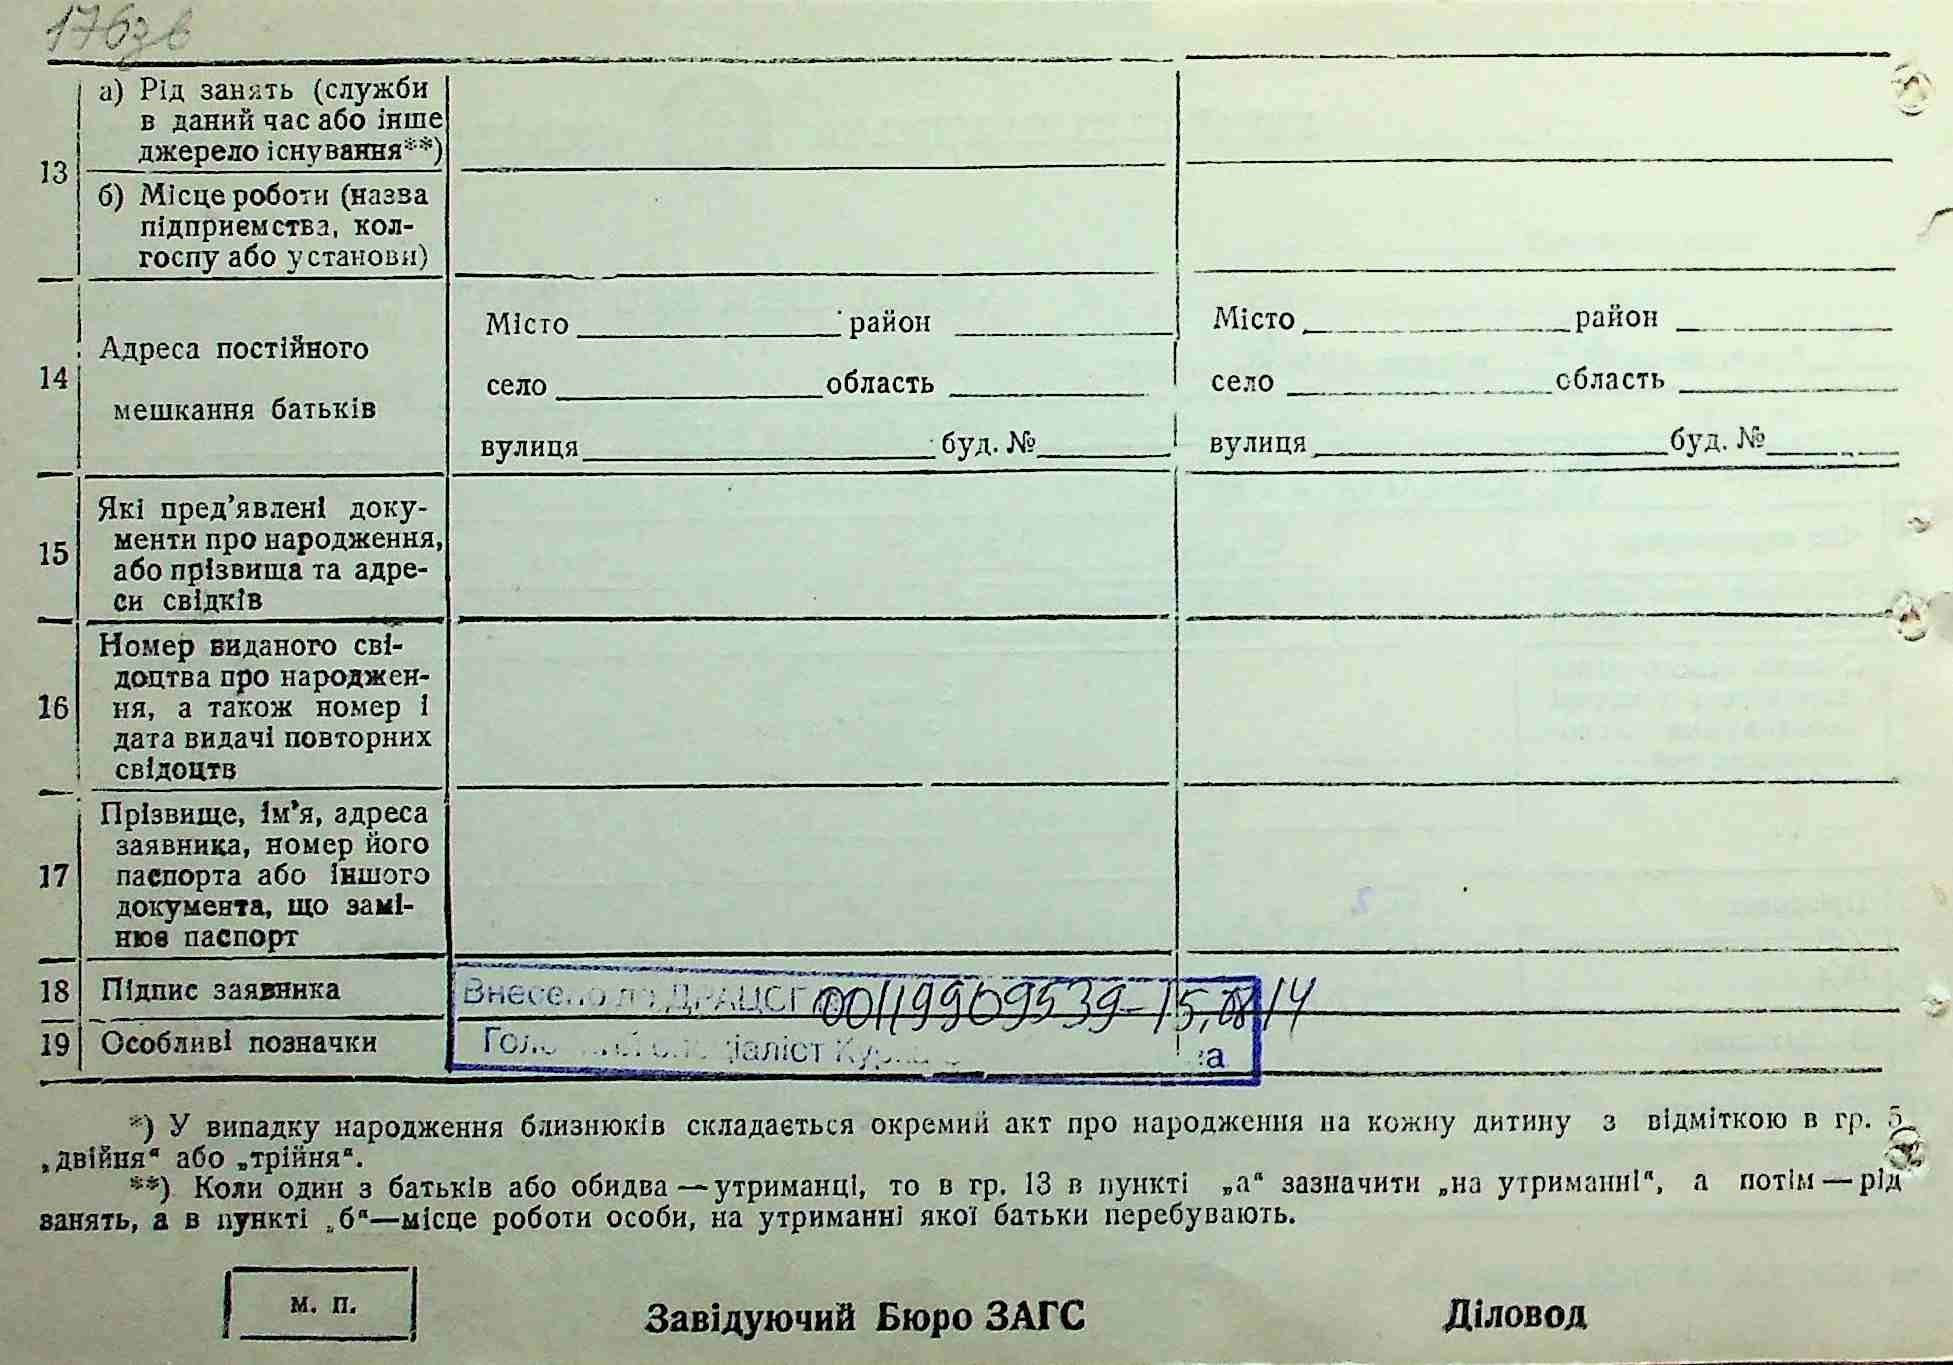 176зв
а) Рід занять (служби
в даний час або інше
джерело існування**)
13
б) Місце роботи (назва
підприємства, кол-
госпу або установи)
14
Адреса постійного
мешкання батьків
Місто район
село область
вулиця буд. №
Місто район
село область
вулиця буд. №
15
Які пред’явлені доку-
менти про народження,
або прізвища та адре-
си свідків
16
Номер виданого сві-
доцтва про народжен-
ня, а також номер і
дата видачі повторних
свідоцтв
17
Прізвище, ім’я, адреса
заявника, номер його
паспорта або іншого
документа, що замі-
нює паспорт
18 Підпис заявника
Внесено до ДРАЦСГ 00119909539-15.08.14
19 Особливі позначки
*) У випадку народження близнюків складається окремий акт про народження на кожну дитину з відміткою в гр. 5
„двійня“ або „трійня“.
**) Коли один з батьків або обидва — утриманці, то в гр. 13 в пункті „а“ зазначити „на утриманні“, а потім — рід
занять, а в пункті „б“—місце роботи особи, на утриманні якої батьки перебувають.
м. п.
Завідуючий Бюро ЗАГС
Діловод